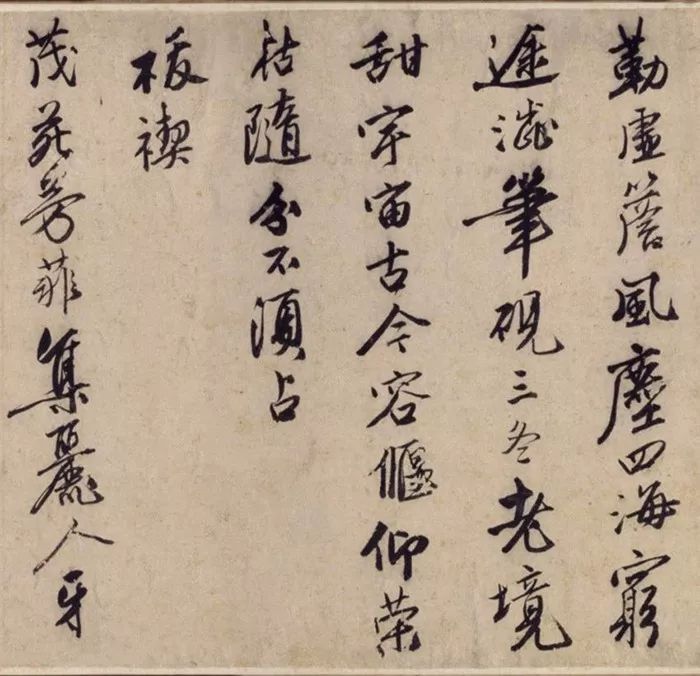 勤虛簷風塵四海窮
途澁筆硯三冬老境
甜宇宙古今容偃仰榮
枯隨分不須占
祓禊
茂苑芳菲集麗人牙